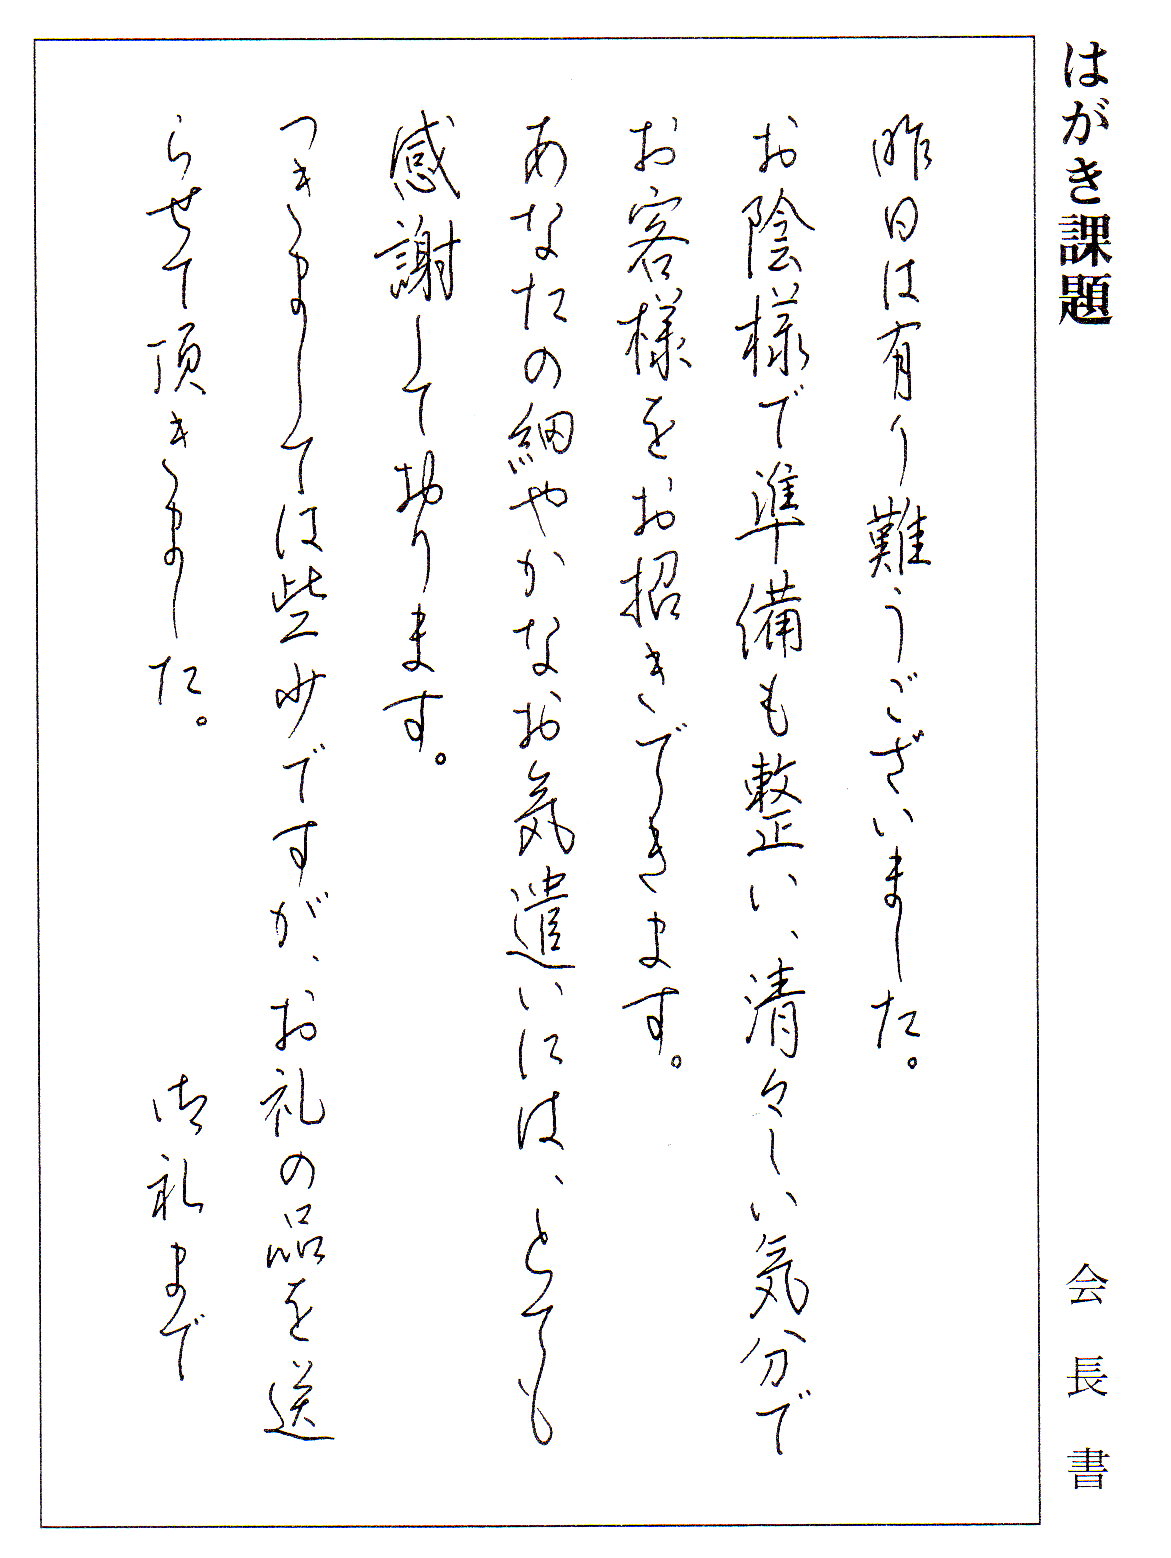 はがき課題
会長書
昨日は有り難うございました。
お陰様で準備も整い、清々しい気分で
お客様をお招きできます。
あなたの細やかなお気遣いには、とても
感謝しております。
つきましては些少ですが、お礼の品を送
らせて頂きました。
御礼まで